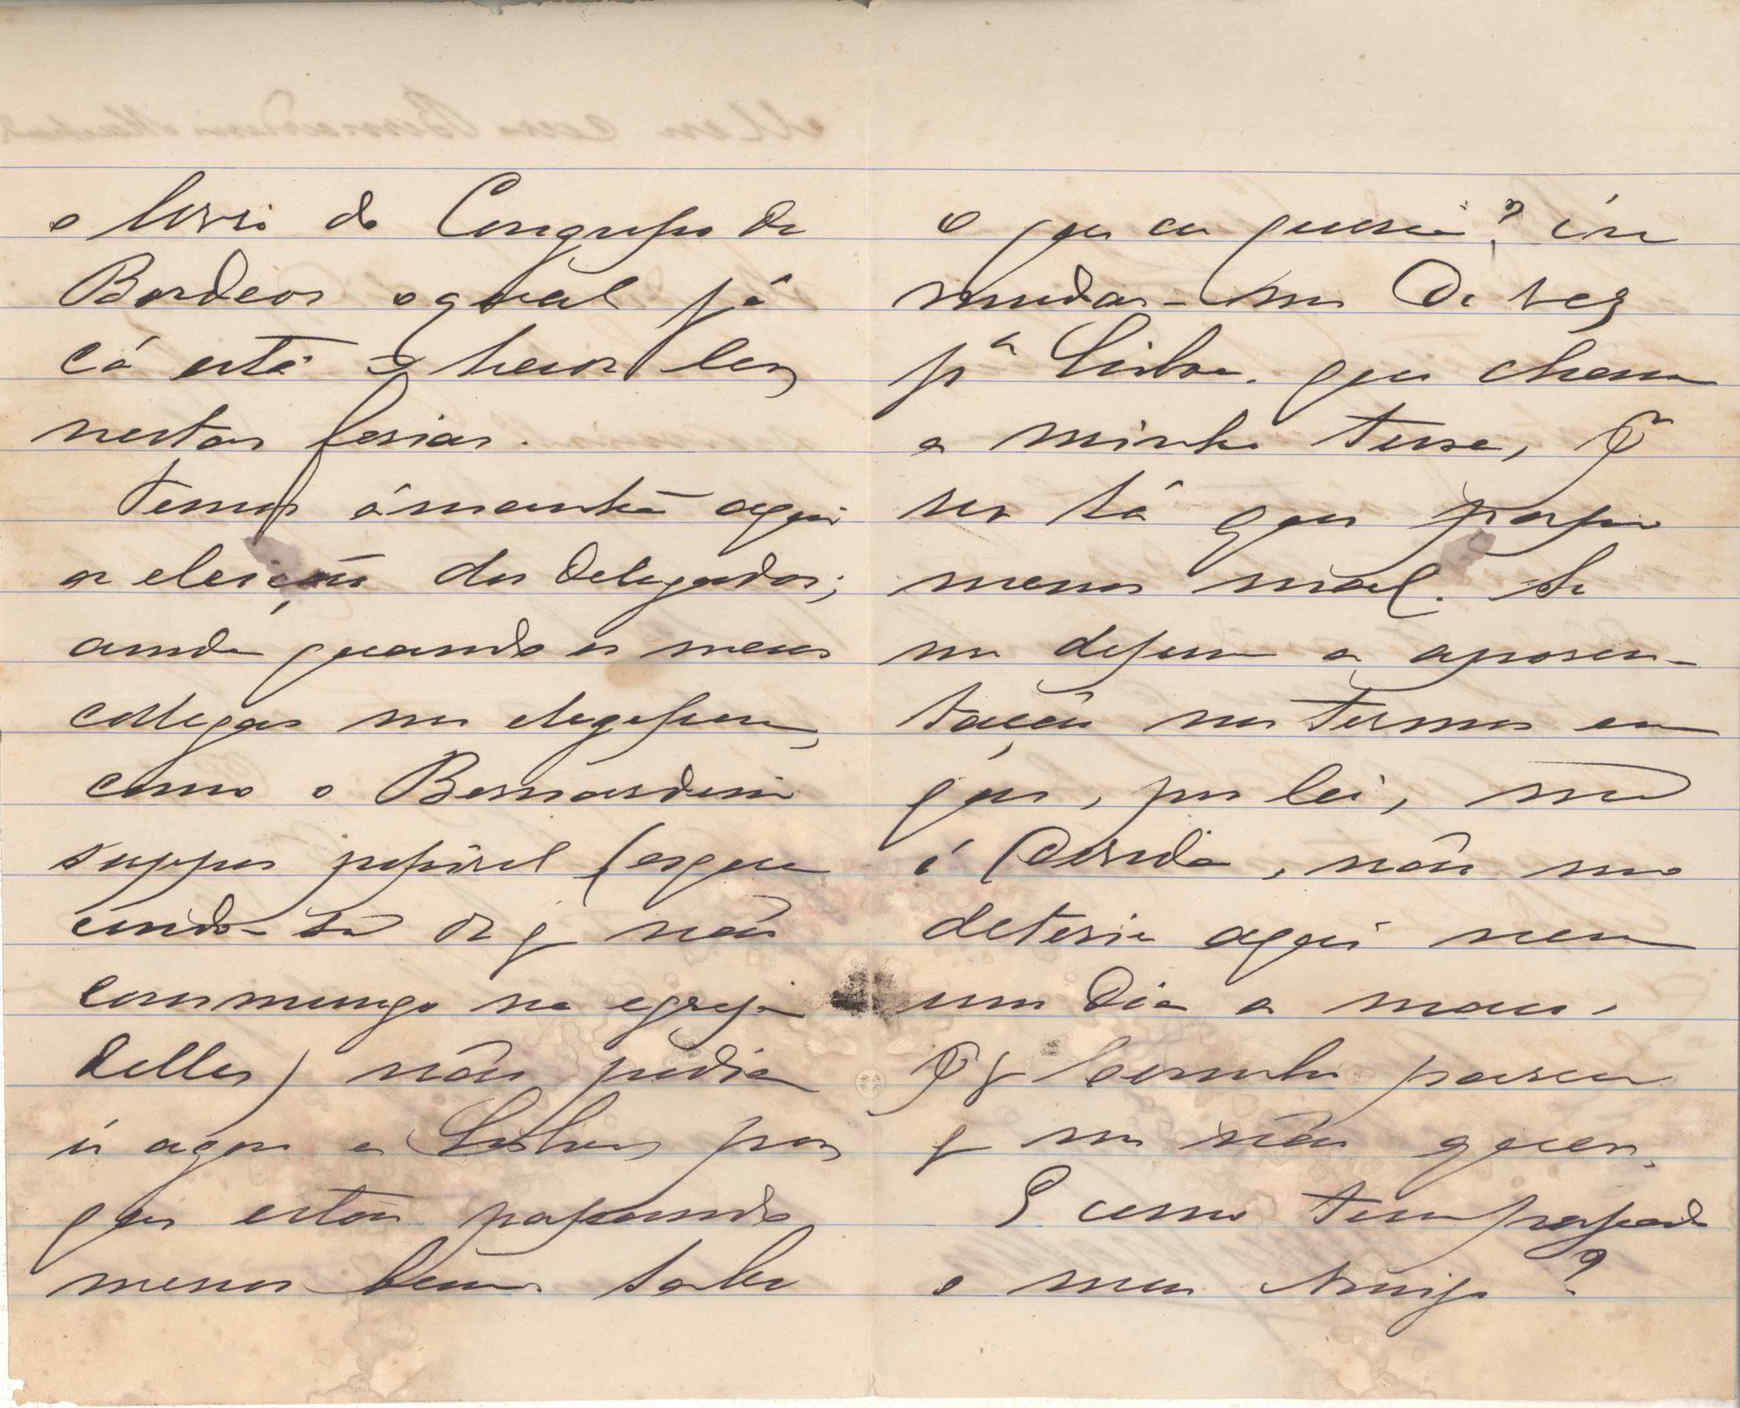 o livro do Congresso de
Bordeos o qual já
cá está e heior ler
nestas ferias.
Temos ámanhã aqui
a eleição dos Delegados;
ainda quando os meus
collegas me elegessem,
como o Bernardino
suppos possivel (esque
cendo-se de q não
commungo na egreja
delles) não podia
ir agora a Lisboa, por
que estou passando
menos bem. Sabe
o que eu queria? ir
mudar-me de vez
pª Lisboa. que chama
a minha terra, P.
ser lá que passo
menos mal. Se
me dessem a aposen-
tação nos termos em
que, por lei, me
é devida, não me
deteria aqui nem
um dia a mais.
Pq Coimbra parece
q me não quer.
E como tem passado
o meu Amigo?